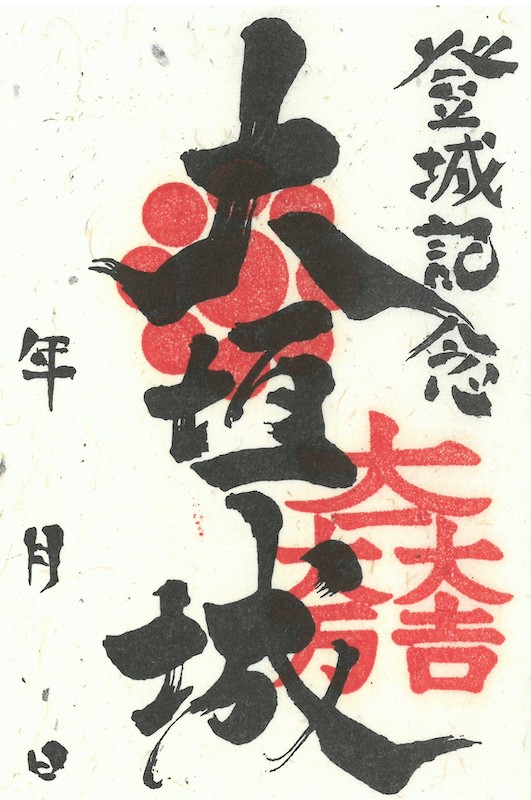 登城記念
大垣城
大一大万大吉
年 月 日